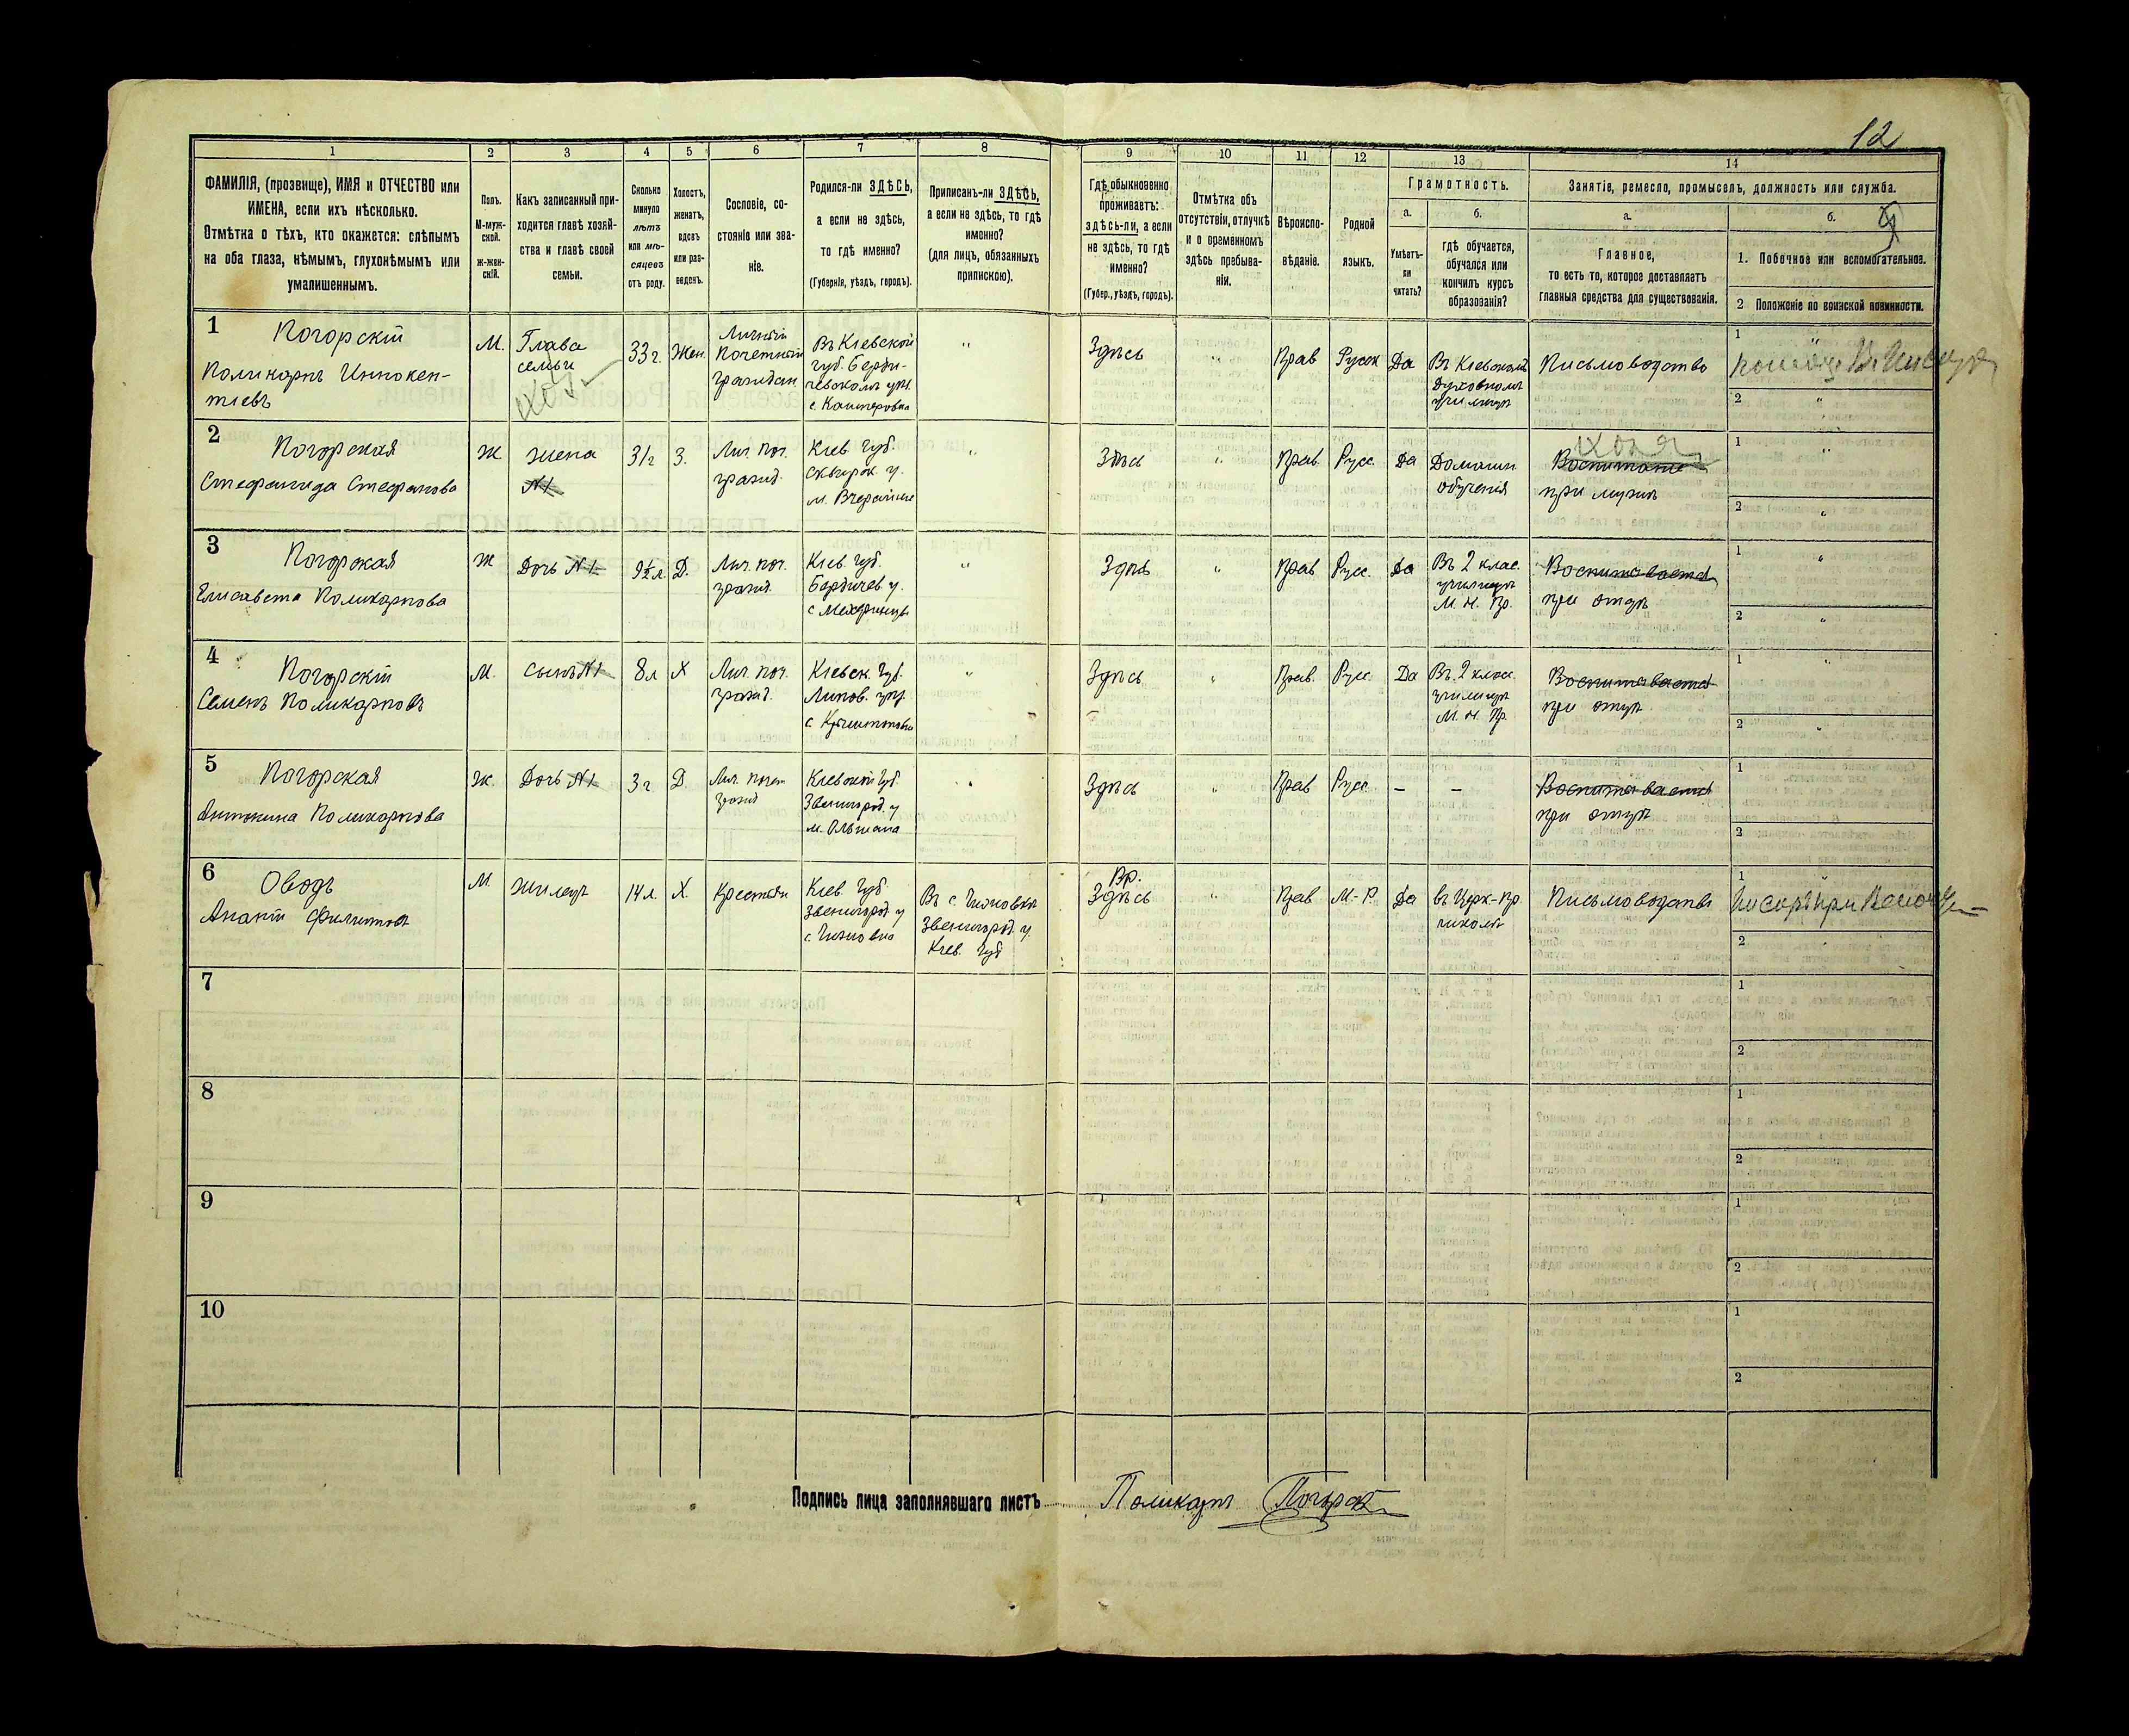 12
1 2 3 4 5 6 7 8 9 10 11 12 13 14
ФАМИЛІЯ, (прозвище), ИМЯ и ОТЧЕСТВО или
ИМЕНА, если ихъ нѣсколько.
Отмѣтка о тѣхъ, кто окажется: слѣпымъ
на оба глаза, нѣмымъ, глухонѣмымъ или
умалишеннымъ.
Полъ.
М-муж-
ской.
ж-жен-
скій.
Какъ записанный при-
ходится главѣ хозяй-
ства и главѣ своей
семьи.
Сколько
минуло
лѣтъ
или мѣ-
сяцевъ
отъ роду.
Холостъ,
женатъ,
вдовъ
или раз-
веденъ.
Сословіе, со-
стояніе или зва-
ніе.
Родился-ли ЗДѢСЬ,
а если не здѣсь,
то гдѣ именно?
(Губернія, уѣздъ, городъ).
Приписанъ-ли ЗДѢСЬ,
а если не здѣсь, то гдѣ
именно?
(для лицъ, обязанныхъ
припискою).
Гдѣ обыкновенно
проживаетъ:
здѣсь-ли, а если
не здѣсь, то гдѣ
именно?
(Губер., уѣздъ, городъ).
Отмѣтка объ
отсутствіи, отлучкѣ
и о временномъ
здѣсь пребыва-
ніи.
Вѣроиспо-
вѣданіе.
Родной
языкъ.
Грамотность.
а.
Умѣетъ-
ли
читать?
б.
гдѣ обучается,
обучался или
кончилъ курсъ
образованія?
Занятіе, ремесло, промыселъ, должность или служба.
а.
Главное,
то есть то, которое доставляетъ
главныя средства для существованія.
б.
1. Побочное или вспомогательное.
2 Положеніе по воинской повинности.
1
Погорскій
Поликарпъ Иннокен-
тіевъ
М.
Глава
семьи
33 г.
Жен.
Личный
Почетный
граждан
Въ Кіевской
губ. Берди-
чевскомъ уѣз
с. Каштеровка
"
Здѣсь
"
Прав
Русск
Да
Въ Кіевскомъ
Духовномъ
училищѣ
Письмоводство
1
2 "
2
Погорская
Стефанида Стефанова
Ж
жена
N1
31 г
З.
Лич. поч.
гражд.
Кіев. Губ.
Сквирск. у.
м. Вчерайше
"
Здѣсь
"
Прав.
Русс.
Да
Домашн.
обученія
Воспитание
при мужѣ
1 "
2 "
3
Погорская
Елисавета Поликарпова
Ж
Дочь N1
9½ л.
Д.
Лич. поч.
гражд.
Кіев. Губ.
Бердичев у.
с Махаринцы
"
Здѣсь
"
Прав
Русс.
Да
Въ 2 клас.
училищѣ
М. Н. Пр.
Воспитывается
при отцѣ
1 "
2 "
4
Погорскій
Семенъ Поликарповъ
М.
Сынъ N1
8 л
Х
Лич. поч.
гражд.
Кіевск. Губ.
Липов. уѣз.
"
Здѣсь
"
Прав.
Русс.
Да
Въ 2 класс.
училищѣ
М. Н. Пр.
Воспитывается
при отцѣ
1 "
2 "
5
Погорская
Антонина Поликарпова
Ж.
Дочь N1
3 г
Д.
Лич. почет
гражд
Кіевской Губ.
Звенигород. у
м. Ольшана
"
Здѣсь
"
Прав
Русс.
–
–
Воспитывается
при отцѣ
1
2
6
Оводъ
Ананій Филиповъ
М.
жилецъ
14 л.
Х.
Крестьян
Кіев. Губ.
Звенигород. у
с. Чижовка
Въ с. Чижовкѣ
Звенигород. у.
Кіев. Губ
Вр.
Здѣсь
"
Прав
М-Р.
Да
въ Церк-Пр.
школѣ
Письмоводство
1 "
2 "
7
1
2
8
1
2
9
1
2
10
1
2
Подпись лица заполнявшаго листъ Поликарпъ Погорскій